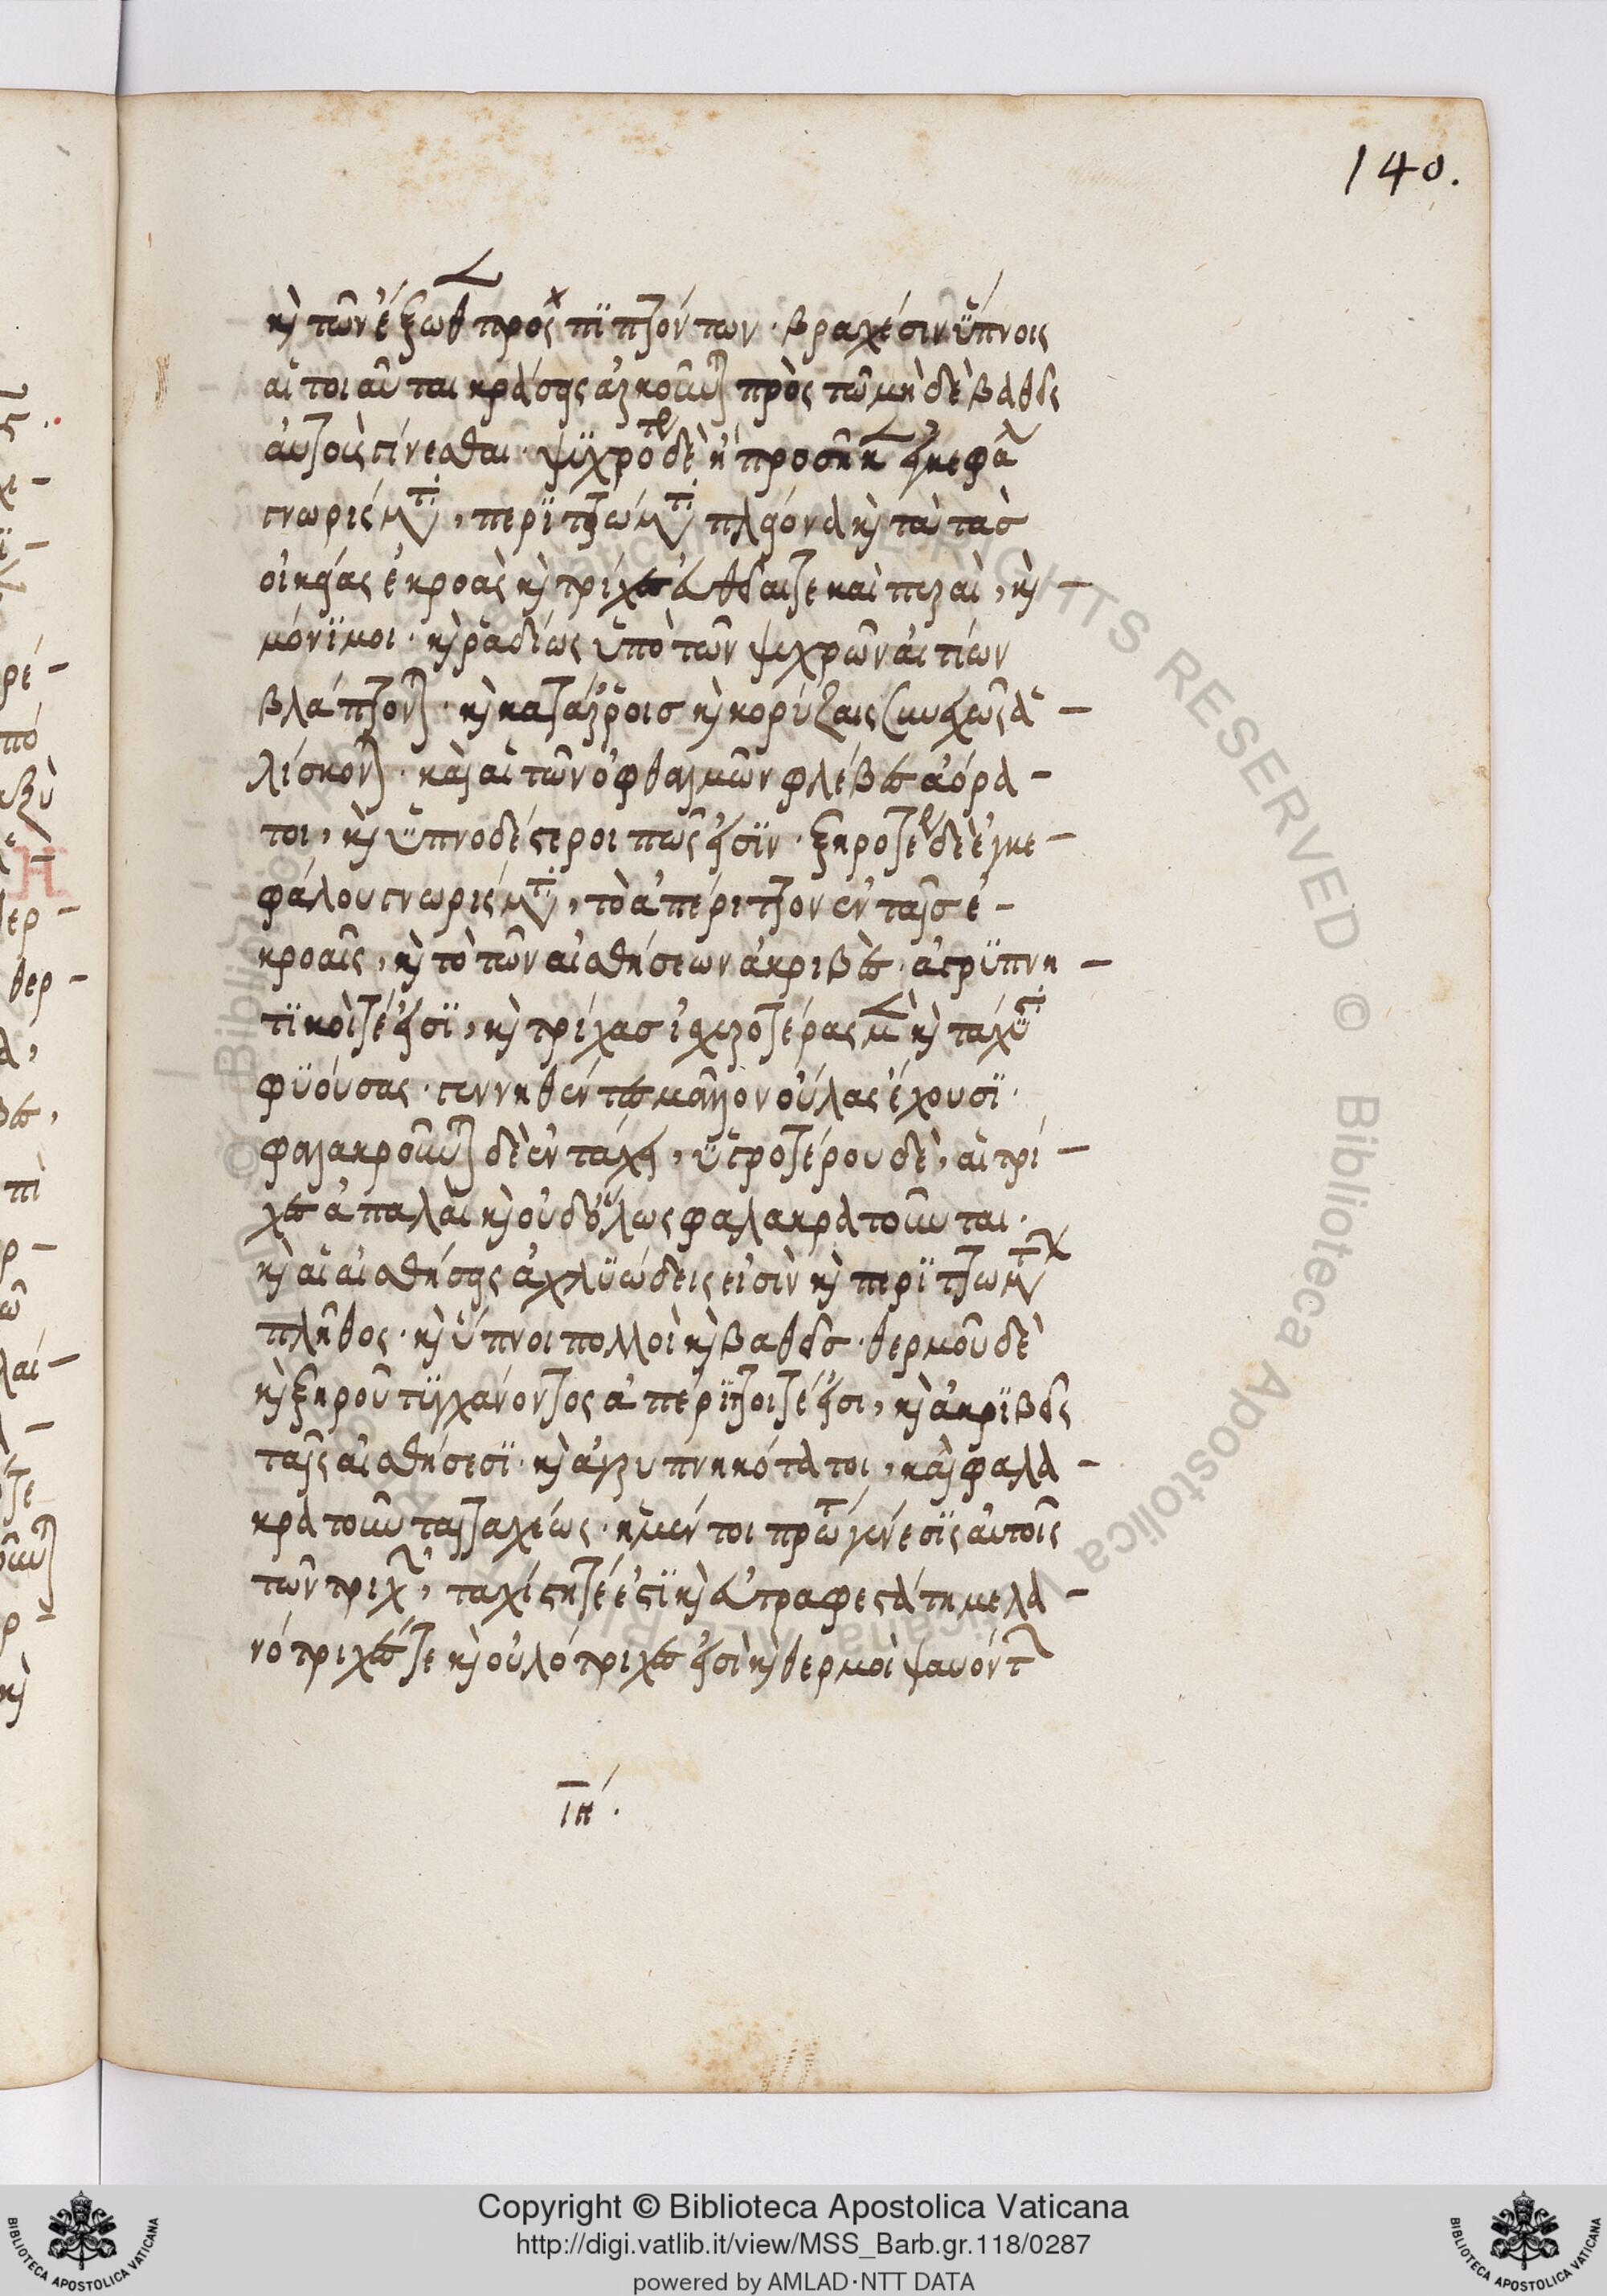 140.
καὶ τῶν ἔξωθεν προσπιπτόντων· βραχέσιν ὕπνοις
αἱ τοιαῦται κράσεις ἀρκοῦνται πρὸς τῶ μὴ δὲ βαθεῖς
αὐτοὺς γίνεσθαι· ψυχροτέρου δὲ ἢ προσήκεν ἐγκεφάλου
γνωρίσματα, περιττώματα πλείονα κατὰ τὰσ
οἰκείας ἐκροὰς καὶ τρίχες εὐθεῖαι τε καὶ πυραὶ, καὶ -
μόνιμοι· καὶ ῥαδίως ὑπὸ τῶν ψυχρῶν αἰτίων
βλάπτονται· καὶ κατάρροισ καὶ κορύζαις συνεχῶς ἁ -
λίσκονται· καὶ αἱ τῶν ὀφθαλμῶν φλέβες ἀόρα -
τοι, καὶ ὑπνοδέστεροι πῶς εἰσὶν· ξηροτέρου δὲ ἐγκε -
φάλου γνωρίσματα, τὸ ἀπέριττον ἐν ταῖσ ἐ -
κροαῖς, καὶ τὸ τῶν αἰσθήσεων ἀκριβὲς· ἀγρυπνη -
τικοί τέ εἰσι, καὶ τρίχασ ἰσχυροτέρας μὲν καὶ τάχιστα
φυούσας· γεννηθέντες μᾶλλον οὔλας ἔχουσι·
φαλακροῦνται δὲ ἐν τάχει, ὑγροτέρου δὲ, αἱ τρί -
χες ἁπαλαὶ καὶ οὐδ' ὅλως φαλακρατοῦνται·
καὶ αἱ αἰσθήσεις ἀχλυώδεις εἰσὶν καὶ περιττωμάτων
πλῆθος· καὶ ὕπνοι πολλοὶ καὶ βαθεῖσ· θερμοῦ δὲ
καὶ ξηροῦ τυγχάνοντος ἀπέριττοι τέ εἰσι, καὶ ἀκριβεῖς
ταῖς αἰσθήσεσι· καὶ ἀγρυπνηκότατοι, καὶ φαλα -
κρατοῦνται ταχέως· ἡ μέν τοι πρώτη γένεσις αὐτοῖς
τῶν τριχῶν, ταχίστη τέ ἐστι καὶ εὐτραφεστάτη μελα -
νότριχές τε καὶ οὐλότριχες εἰσὶ καὶ θερμοὶ ψαυόντων
ιη´.
Copyright © Biblioteca Apostolica Vaticana
http://digi.vatlib.it/view/MSS_Barb.gr.118/0287
powered by AMLAD·NTT DATA